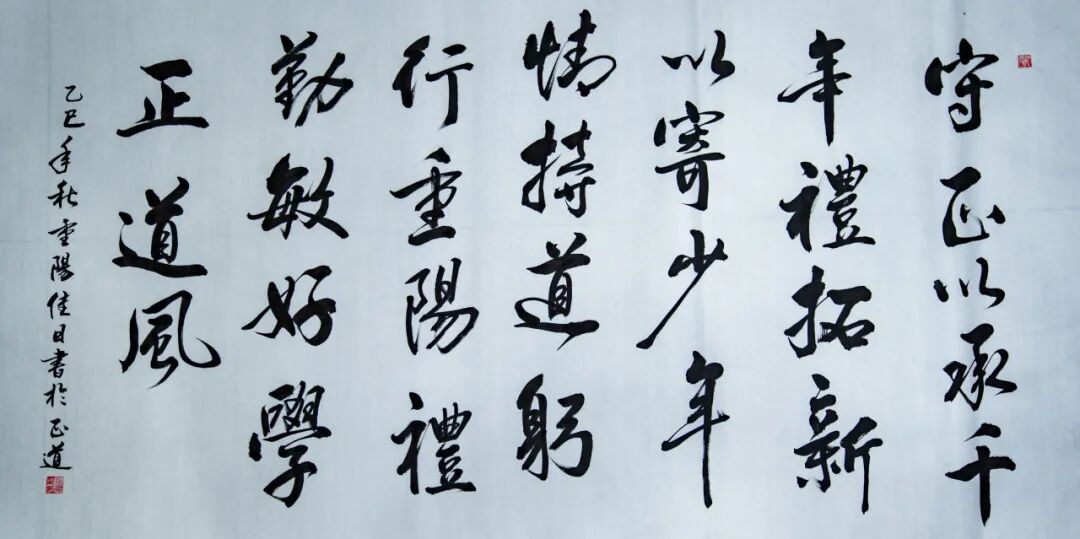 守正以承千
年禮拓新
以寄少年
情持道躬
行重陽禮
勤敏好學
正道風
乙巳年秋重陽佳日書於正道